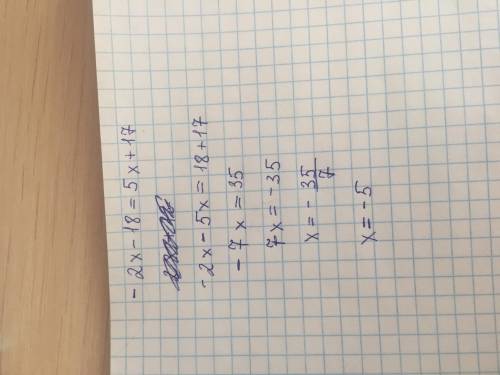 -2x-18=5x+17
-2x-5x=18+17
-7x=35
7x=-35
x=-35/7
x=-5